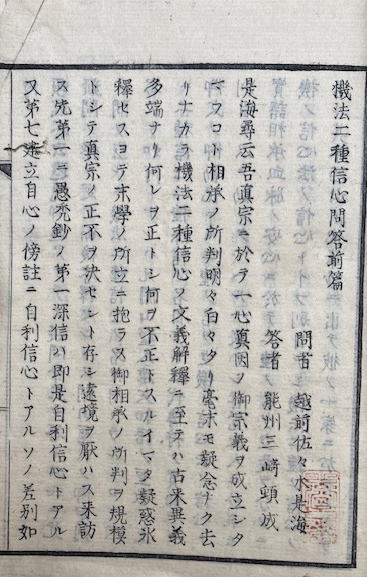 機法二種信心問答前篇
問者 越前佐々木是海
答者 能州三崎頓成
是海尋云吾真宗ニ於テ一心真因ノ御宗義ヲ成立シタ
マフコト相承ノ所判明々白々タリ毫末モ疑念ナク去
リナカラ機法二種信心ノ文義解釋ニ至テハ古来異義
多端ナリ何レヲ正トシ何ヲ不正トスルイマタ疑惑氷
釋セスヨテ末學ノ所立ニ抱ラス御相承ノ所判ヲ規模
トシテ真宗ノ正不ヲ决セント存シ遠境ヲ厭ハス来訪
ス先第一ニ愚禿鈔ノ第一深信ハ即是自利信心トアル
又第七建立自心ノ傍註ニ自利信心トアルソノ差別如